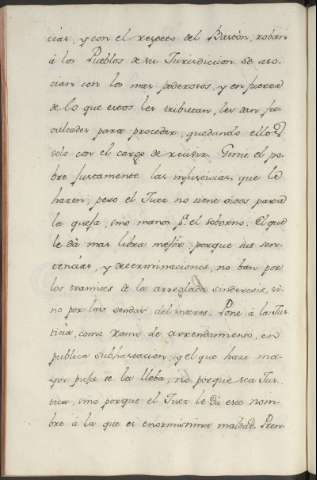 cias, y con el respeto del Bastón, roban
á los Pueblos de su Jurisdiccion. Se aso-
cian con los mas poderosos, y en fuerza
de lo que estos les tributan, les dan fa-
cultades para proceder, quedando ellos
solo con el cargo de recivir. Gime el po-
bre justamente las injusticias, que le
hacen; pero el Juez no tiene oidos para
la quexa, sino manos pª. el soborno. El que
le dá mas libra mejor: porque sus sen-
tencias, y determinaciones, no ban por
los tramites de la arreglada sinderesis, si-
no por las sendas del interes. Pone á la Jus-
ticia, como Ramo de arrendamiento, en
publica subhastacion; y el que hace ma-
yor puja se la lleba, no porque sea Jus-
ticia, sino porque el Juez le dá este nom-
bre á la que es enormisima maldad.